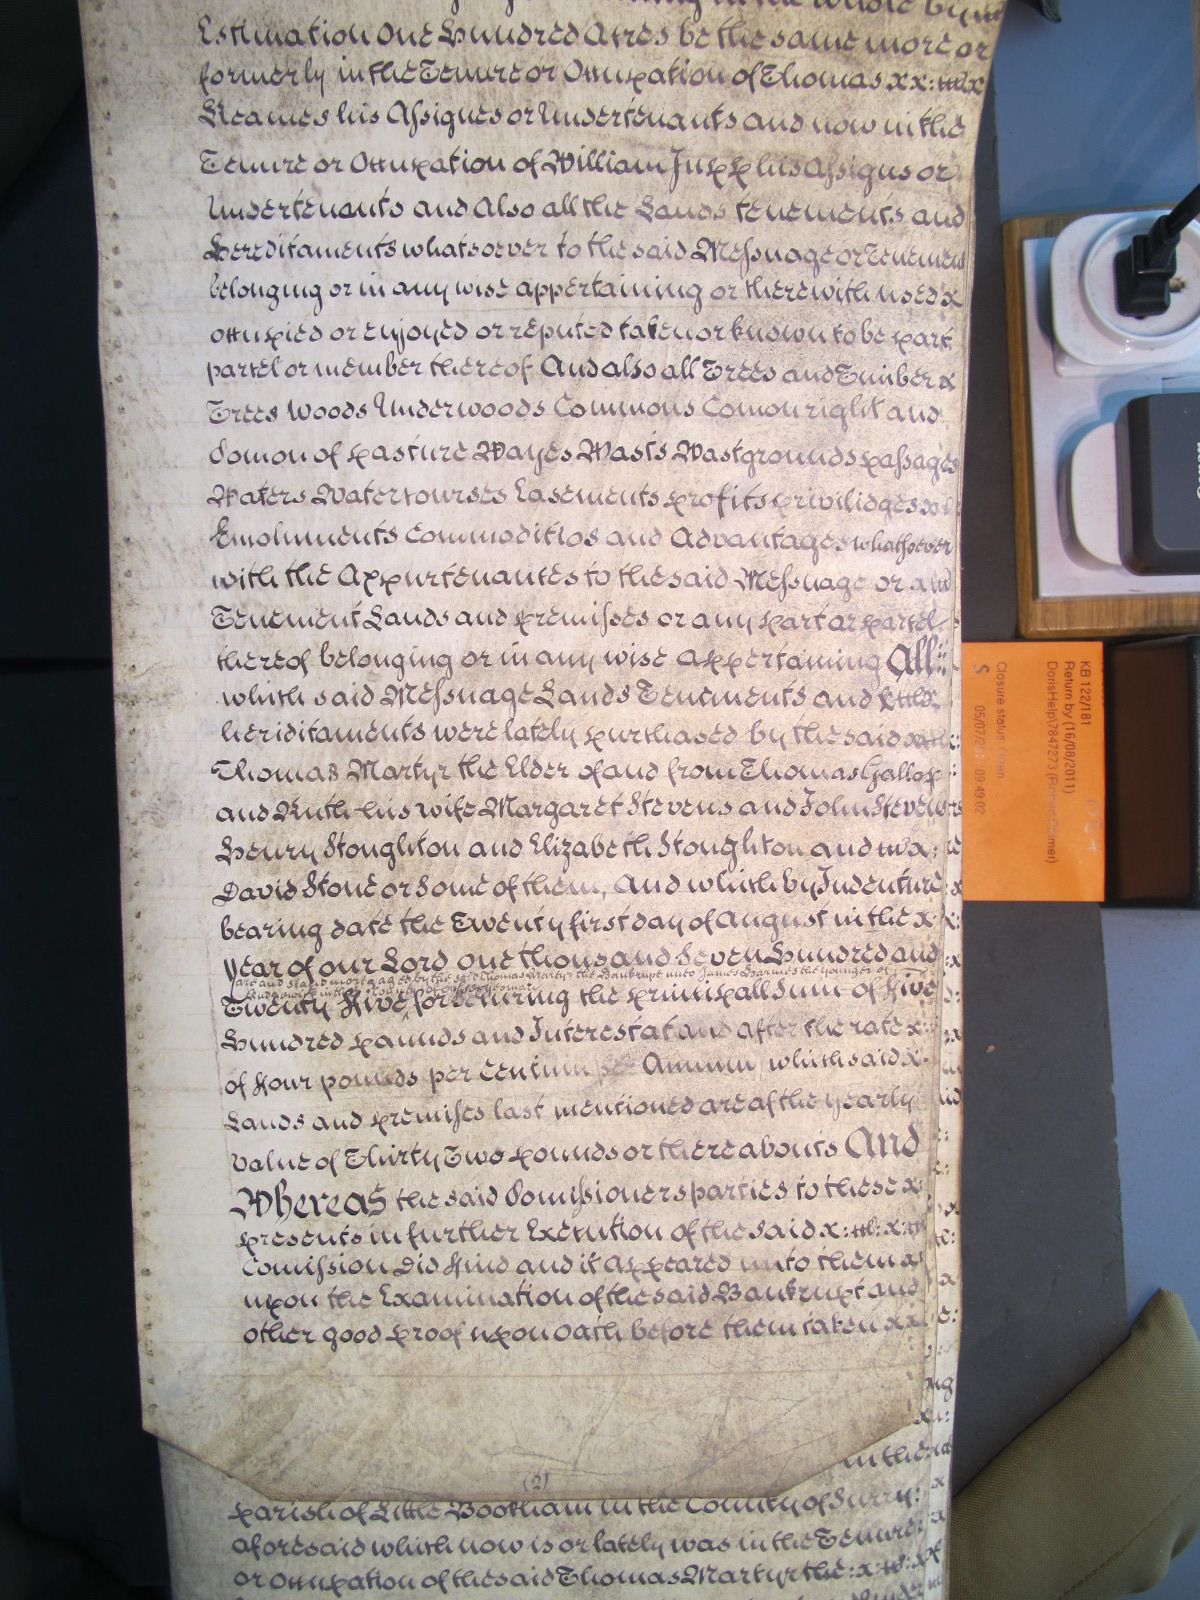 in the whole by
Estimation One Hundred Acres be the same more or
formerly in the Tenure or Occupation of Thomas x x:
Reames his Assignes or Undertenants and now in the
Tenure or Occupation of William Jupp his Assigns or
Undertenants and Also all the Lands tenements and
Hereditaments whatsoever to the said Messuage or Tenement
belonging or in any wise appertaining or therewith used x
occupied or enjoyed or reputed taken or known to be part
parcel or member thereof And also all Trees and Timber x
Trees Woods Underwoods Commons Comon right and
Comon of pasture Wayes Wasts Wastgrounds passages
Waters Watercourses Easements profits priviledges
Emoluments Commodities and Advantages whatsoever
with the Appurtenances to the said Messuage or
Tenement Lands and premisses or any part or parcel
thereof belonging or in any wise Appertaining All
which said Messuage Lands Tenements and
heriditaments were lately purchased by the said
Thomas Martyr the Elder of and from Thomas Gallop
and Ruth his wife Margaret Stevens and John Stevens
Henry Stoughton and Elizabeth Stoughton and
David Stone or Some of them, And which by Indenture
bearing date the Twenty first day of August in the x
year of our Lord one thousand Seven Hundred and
are and stand mortgaged by the sd. Thomas Martyr the Bankrupt unto James the younger of
in the County of yeoman
Twenty five for securing the principall Sum of five
Hundred pounds and Interest at and after the rate x
of four pounds per Centum per Annum, which said x
Lands and premisses last mentioned are of the yearly
value of Thirty Two pounds or thereabouts And
Whereas the said Comissioners parties to these x
presents in further Execution of the said x:
Comission Did find and it Appeared unto them
upon the Examination of the said Bankrupt and
other good proof upon Oath before them taken x x
(2)
in the
parish of Little Bookham in the County of Surry:
aforesaid which now is or lately was in the Tenure
or Occupation of the said Thomas Martyr the
KB 122/181
Return by (16/08/2011)
DorisHelp\7847273 (Robert Palmer)
Closure status: Open
S
09:49:02